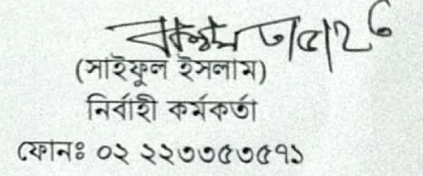 ৩/৫/২৬
(সাইফুল ইসলাম)
নির্বাহী কর্মকর্তা
ফোনঃ ০২ ২২৩৩৫৩৫৭১